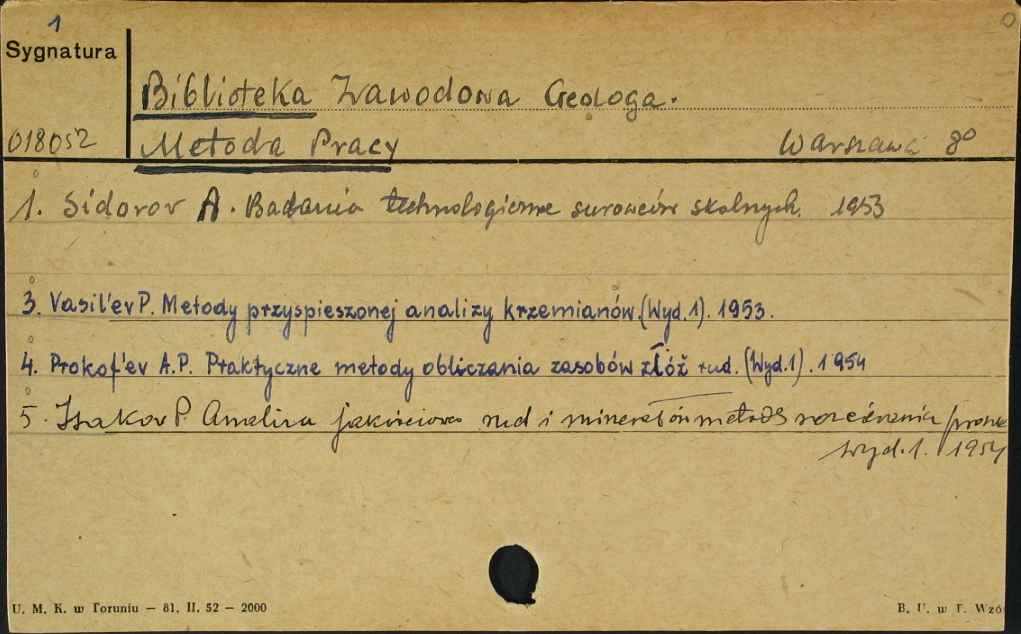 1
Sygnatura
Biblioteka Zawodowa Geologa.
018052 Metoda Pracy Warszawa 8º
1. Sidorov A. Badania technologiczne surowców skalnych. 1953
3. Vasil'ev P. Metody przyspieszonej analizy krzemianów. (Wyd.1). 1953.
4. Prokof'ev A.P. Praktyczne metody obliczania zasobów złóż rud. (Wyd.1). 1954
5. Isakov P. Analiza jakościowa rud i minerałów metodą rozcierania proszk
Wyd. 1. 1954
U. M. K. w Toruniu — 81. II. 52 — 2000
B. U. w T. Wzó